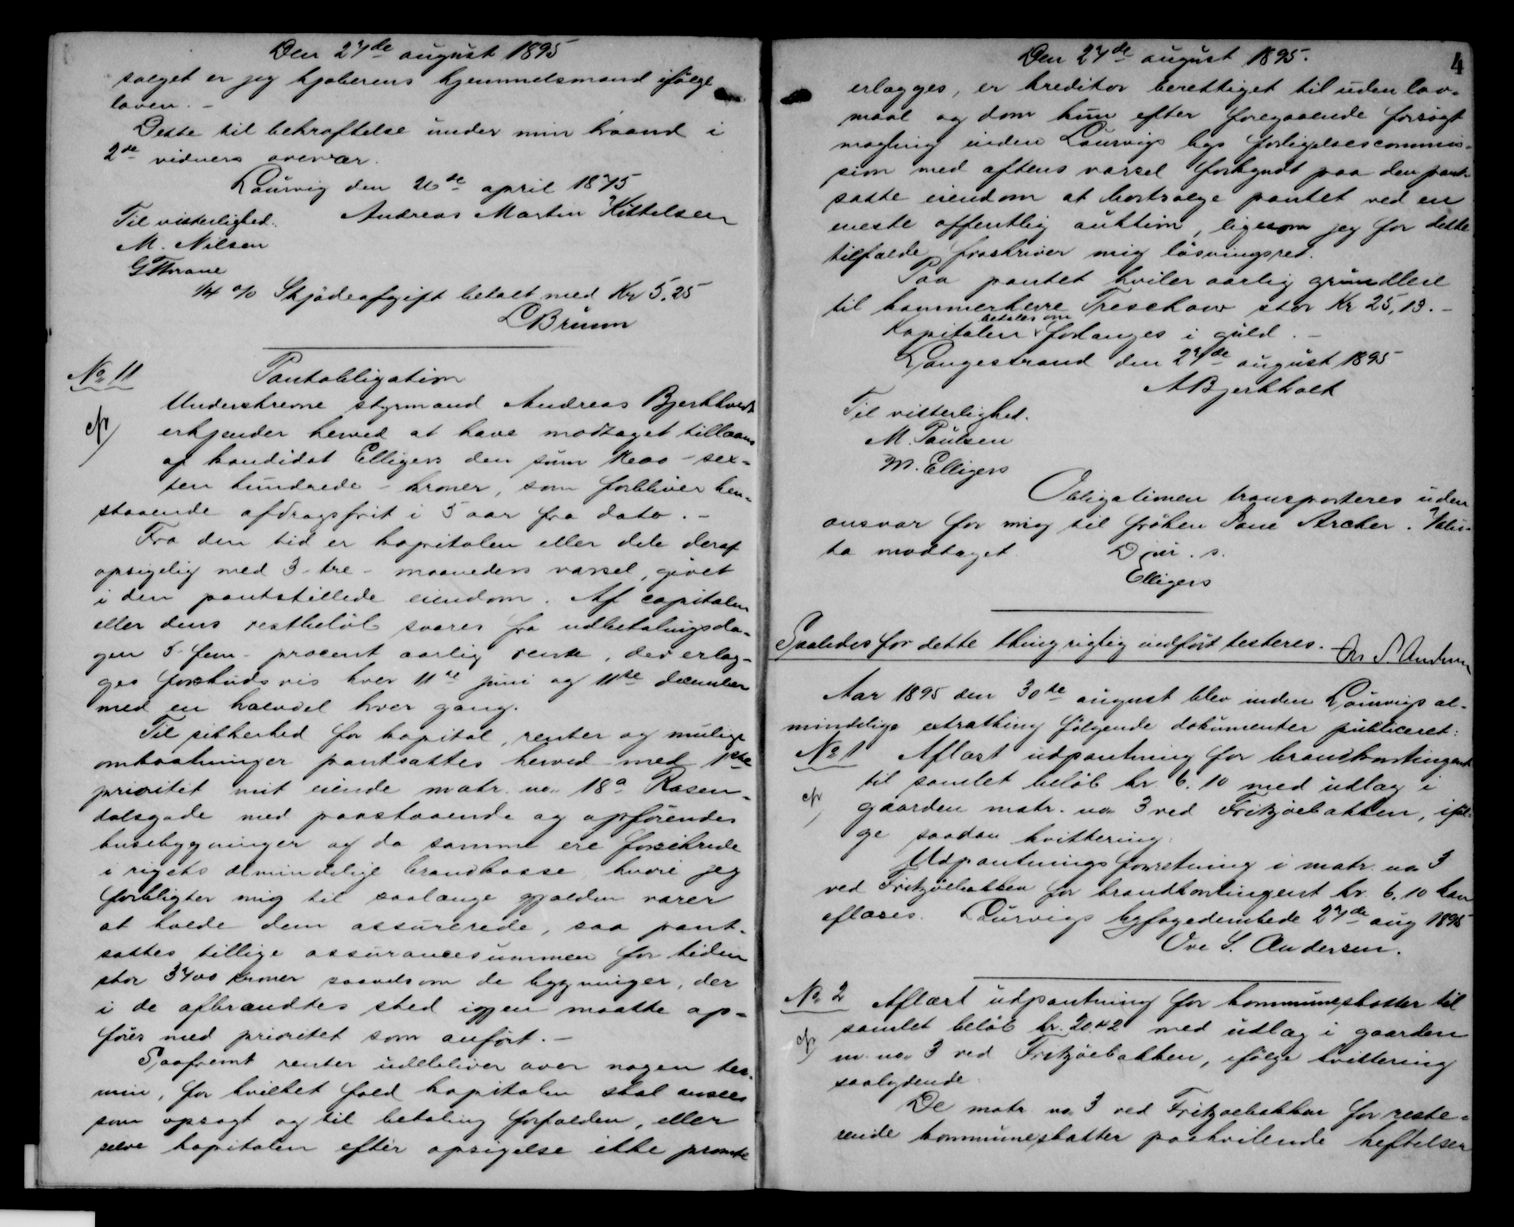 Den 27de august 1895
solget er jeg kjøberens hjemmelsmand ifølge
loven. -
Dette til bekræftelse under min haand i
2de vidners overvær.
Laurvig den 26de april 1875
Til vitterlighed. Andreas Martin Kittelsen
M. Nilsen
G Thrane
1/4 % Skjødeafgift betalt med Kr 5.25
L Bruun
No 11 Pantobligation
Underskrevne styrmand Andreas Bjerkholt
erkjender herved at have modtaget tillaans
af kandidat Elligers den sum 1600 - sex-
ten hundrede - kroner, som forbliver hen-
staaende afdragsfrit i 5 aar fra dato. -
Fra den tid er kapitalen eller dele deraf
opsigelig med 3 - tre - maaneders varsel, givet
i den pantstillede eiendom. Af capitalen
eller dens restbeløb svares fra udbetalingsda-
gen 5 - fem - procent aarlig rente, der erlæg-
ges forskudsvis hver 11te juni og 11te december
med en halvdel hver gang.
Til sikkerhed for kapital, renter og mulige
omkostninger pantsættes herved med 1ste
prioritet mit eiende matr. no. 18a Rosen-
dalsgade med paastaaende og opførendes
husebygninger og da samme ere forsikrede
i rigets almindelige brandkasse, hvori jeg
forpligter mig til saalænge gjælden varer
at holde dem assurerede, saa pant-
sættes tillige assurancesummen for tiden
stor 3700 kroner saavelsom de bygninger, der
i de afbrændtes sted igjen maatte op-
føres med prioritet som anført. -
Saafremt renter udebliver over nogen ter-
min, for hvilket fald kapitalen skal ansees
som opsagt og til betaling forfalden, eller
selve kapitalen efter opsigelse ikke promte
Den 27de august 1895. 4
erlægges, er kreditor berettiget til uden lov-
maal og dom kun efter foregaaende forsøgt
mægling inden Laurvigs bys forligelsescommis-
sion med aftens varsel forkyndt paa den pant-
satte eiendom at bortsælge pantet ved en
eneste offentlig auktion, ligesom jeg for dette
tilfælde fraskriver mig løsningsret.
Paa pantet hviler aarlig grundleie
til kammerherre Treschow stor Kr 25,13. -
betales om
Kapitalen forlanges i guld. -
Langestrand den 27de august 1895
A Bjerkholt
Til vitterlighed.
M. Paulsen
M. Elligers
Obligationen transporteres uden
ansvar for mig til frøken Jane Archer. Valu-
ta modtaget D. u. s.
Elligers
Saaledes for dette thing rigtig indført testeres. Ove S. Andersen
Aar 1895 den 30te august blev inden Laurvigs al-
mindelige extrathing følgende dokumenter publiceret:
No 1 Aflæst udpantning for brandkontingent
til samlet beløb kr 6.10 med udlæg i
gaarden matr. no 3 ved Fritzøebakken, iføl-
ge saadan kvittering:
Udpantningsforretning i matr. no 3
ved Fritzøebakken for brandkontingent kr. 6.10 kan
aflæses. Laurvigs byfogedembede 27de aug 1895
Ove S. Andersen.
No 2 Aflæst udpantning for kommuneskatter til
samlet beløb kr. 20.42 med udlæg i gaarden
m. no 3 ved Fritzøebakken, ifølge kvittering
saalydende
De matr. no 3 ved Fritzøebakken for reste-
rende kommuneskatter paahvilende heftelser